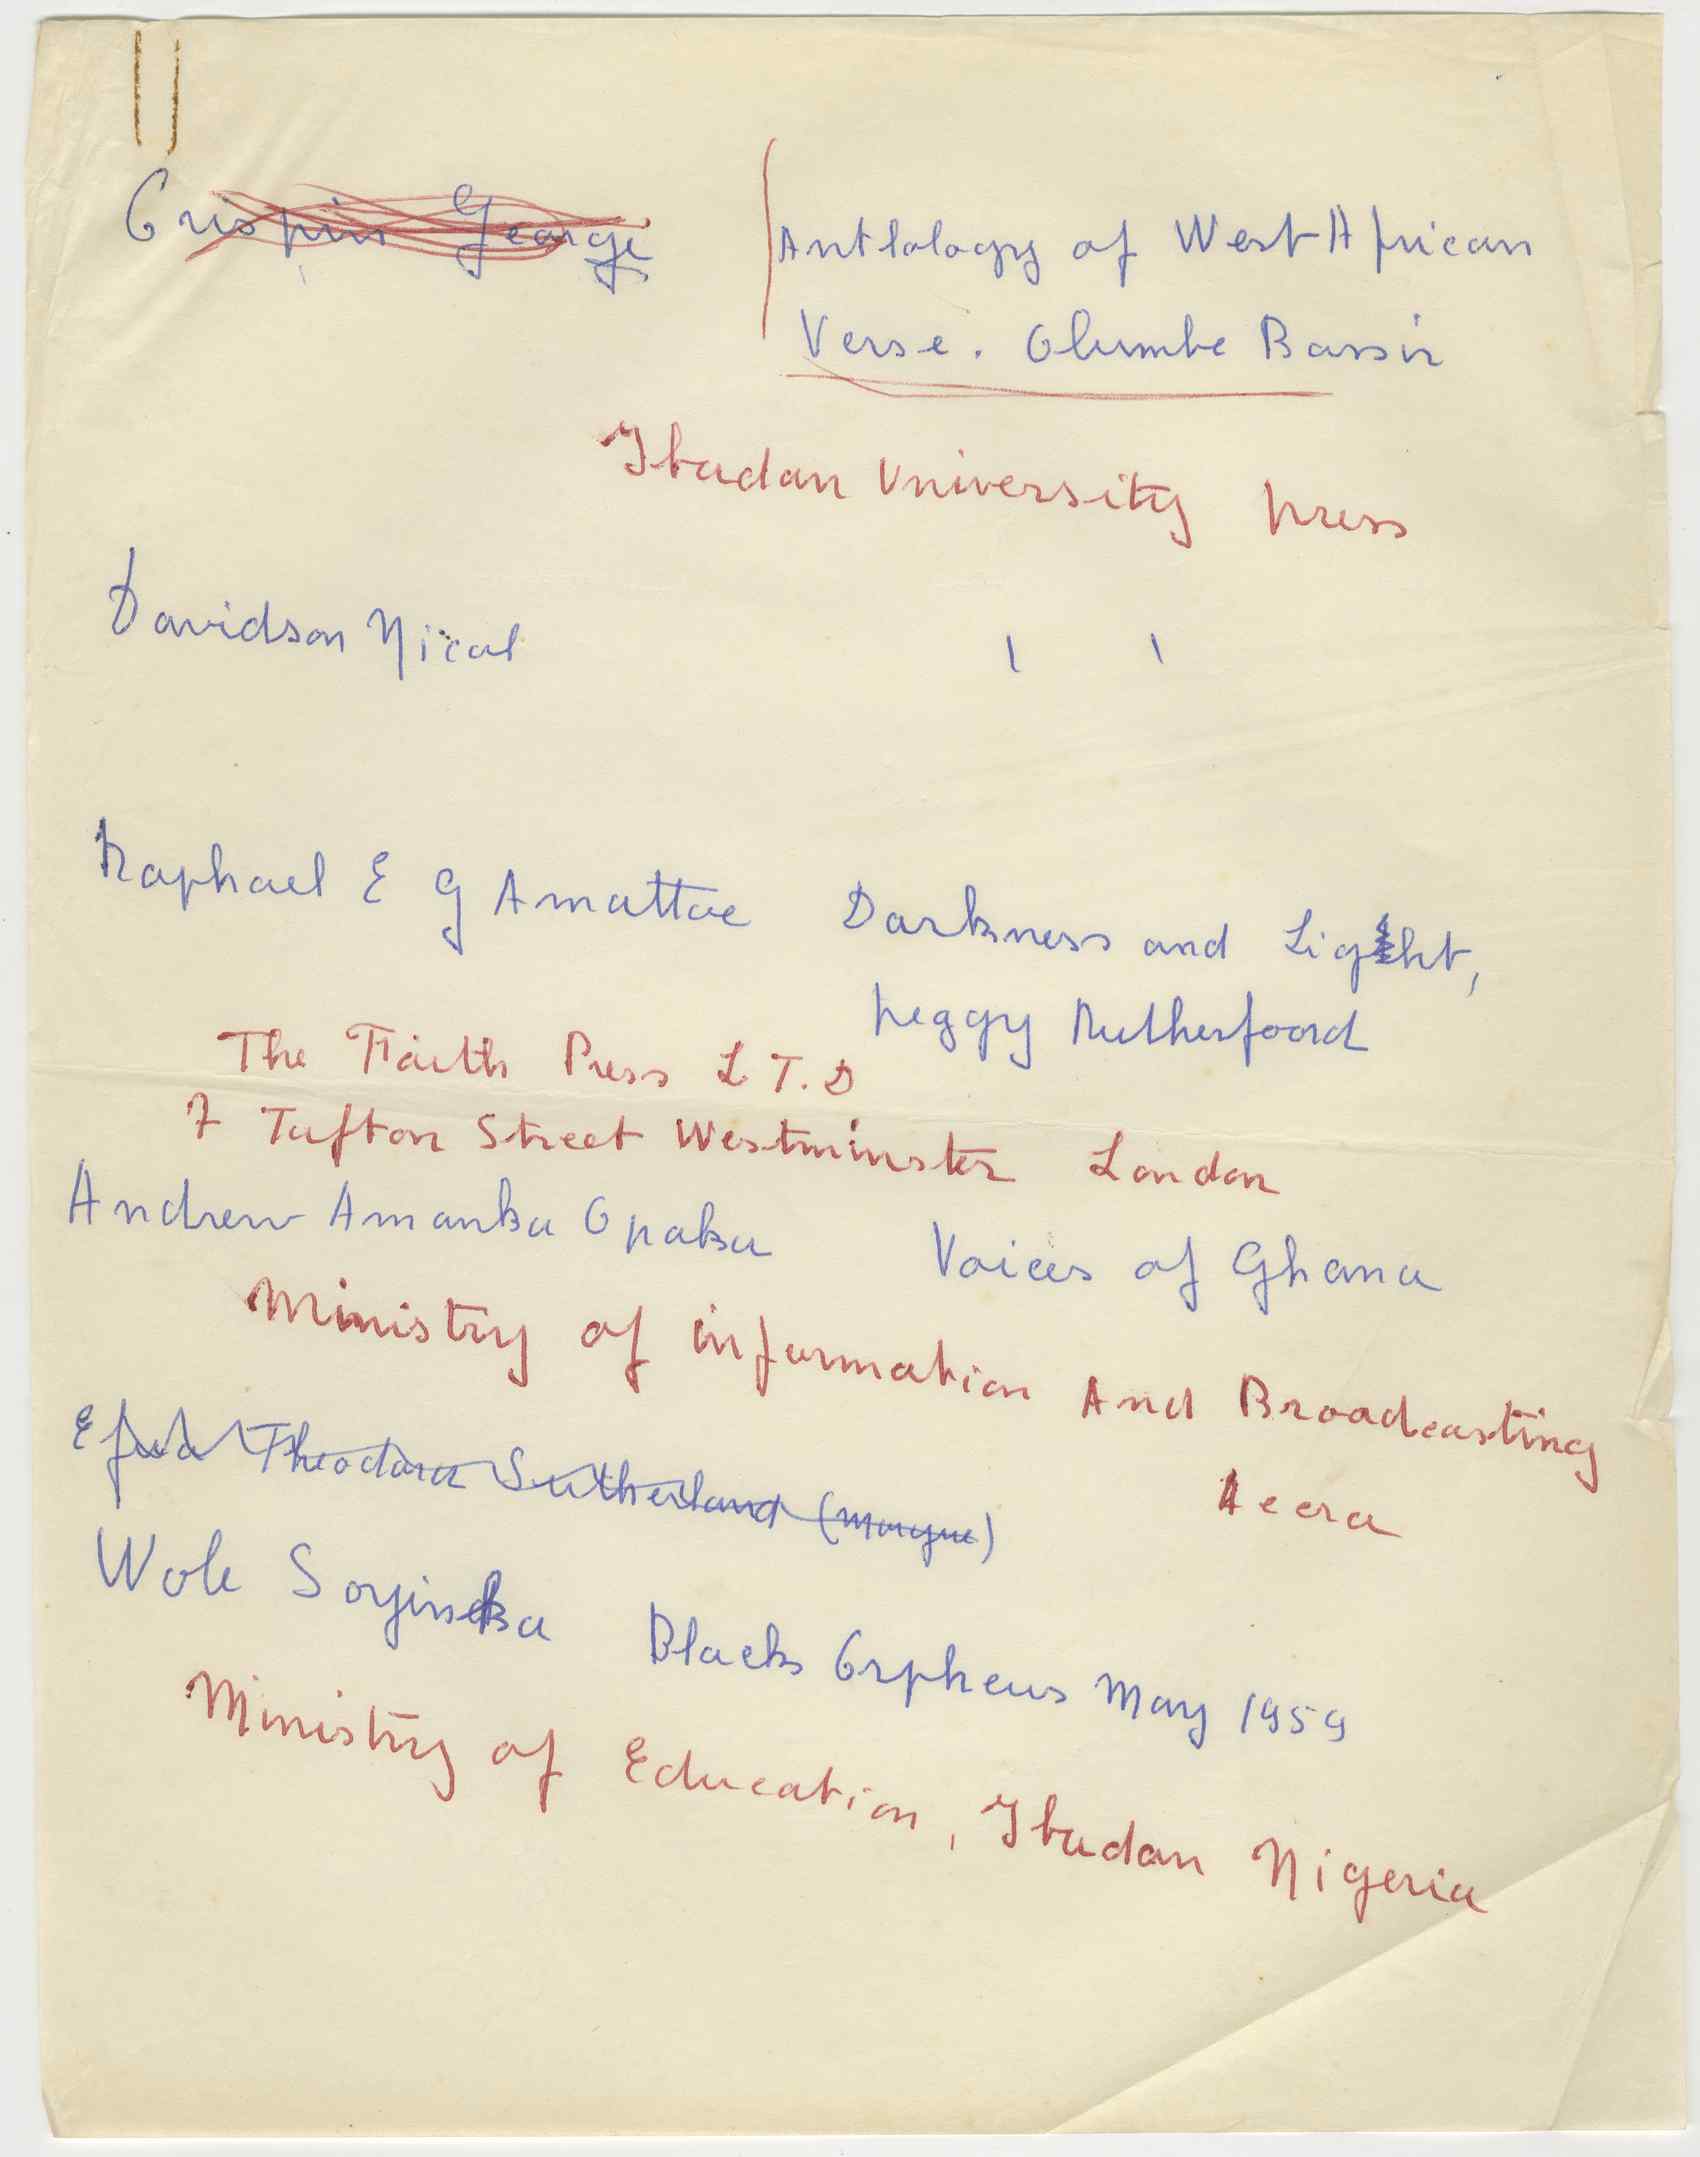 Crispin George Antlology of West African
Verse. Olumbe Bassir
Ibadan University press
Davidson Nicol
Raphael E G Amattoe Darkness and Light,
Peggy Rutherfoord
The Faith Press L T.D
7 Tufton Street Westminster London
Andrew Amanka Opaku Voices of Ghana
Ministry of information And Broadcasting
Accra
Efua Theodora Sutherland (Morgue)
Wole Soyinka Blacks Orpheus May 1959
Ministry of Education, Ibadan Nigeria